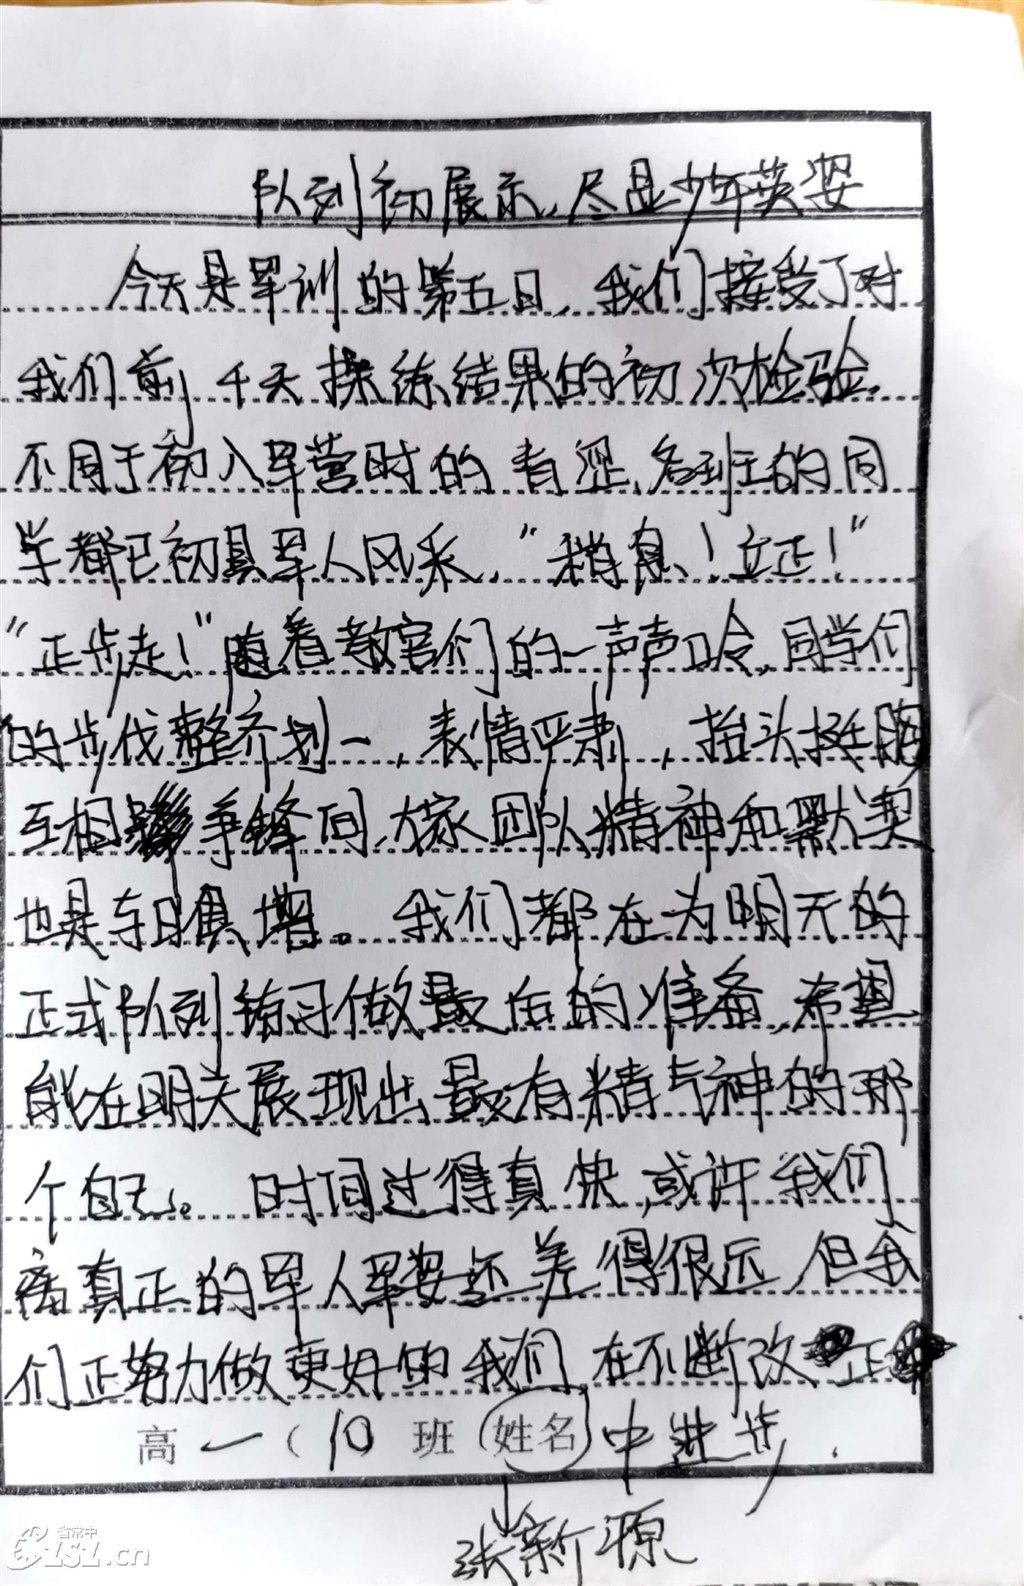 队列初展示,尽显少年英姿
今天是军训的第五日,我们接受了对
我们前几天操练结果的初次检验.
不同于初入军营时的青涩,各班的同
学都已初具军人风采,"稍息!立正!"
"正步走!"随着教官们的一声声口令,同学们
的步伐整齐划一,表情严肃,抬头挺胸
互相争锋间,大家团队精神和默契
也是与日俱增。我们都在为明天的
正式队列练习做最后的准备,希望
能在明天展现出最有精气神的那
个自己。时间过得真快,或许我们
离真正的军人军姿还差得很远,但我
们正努力做更好的我们,在不断改正
高一(10班(姓名)中进步.
张新源
省常中
CZSZ.cn